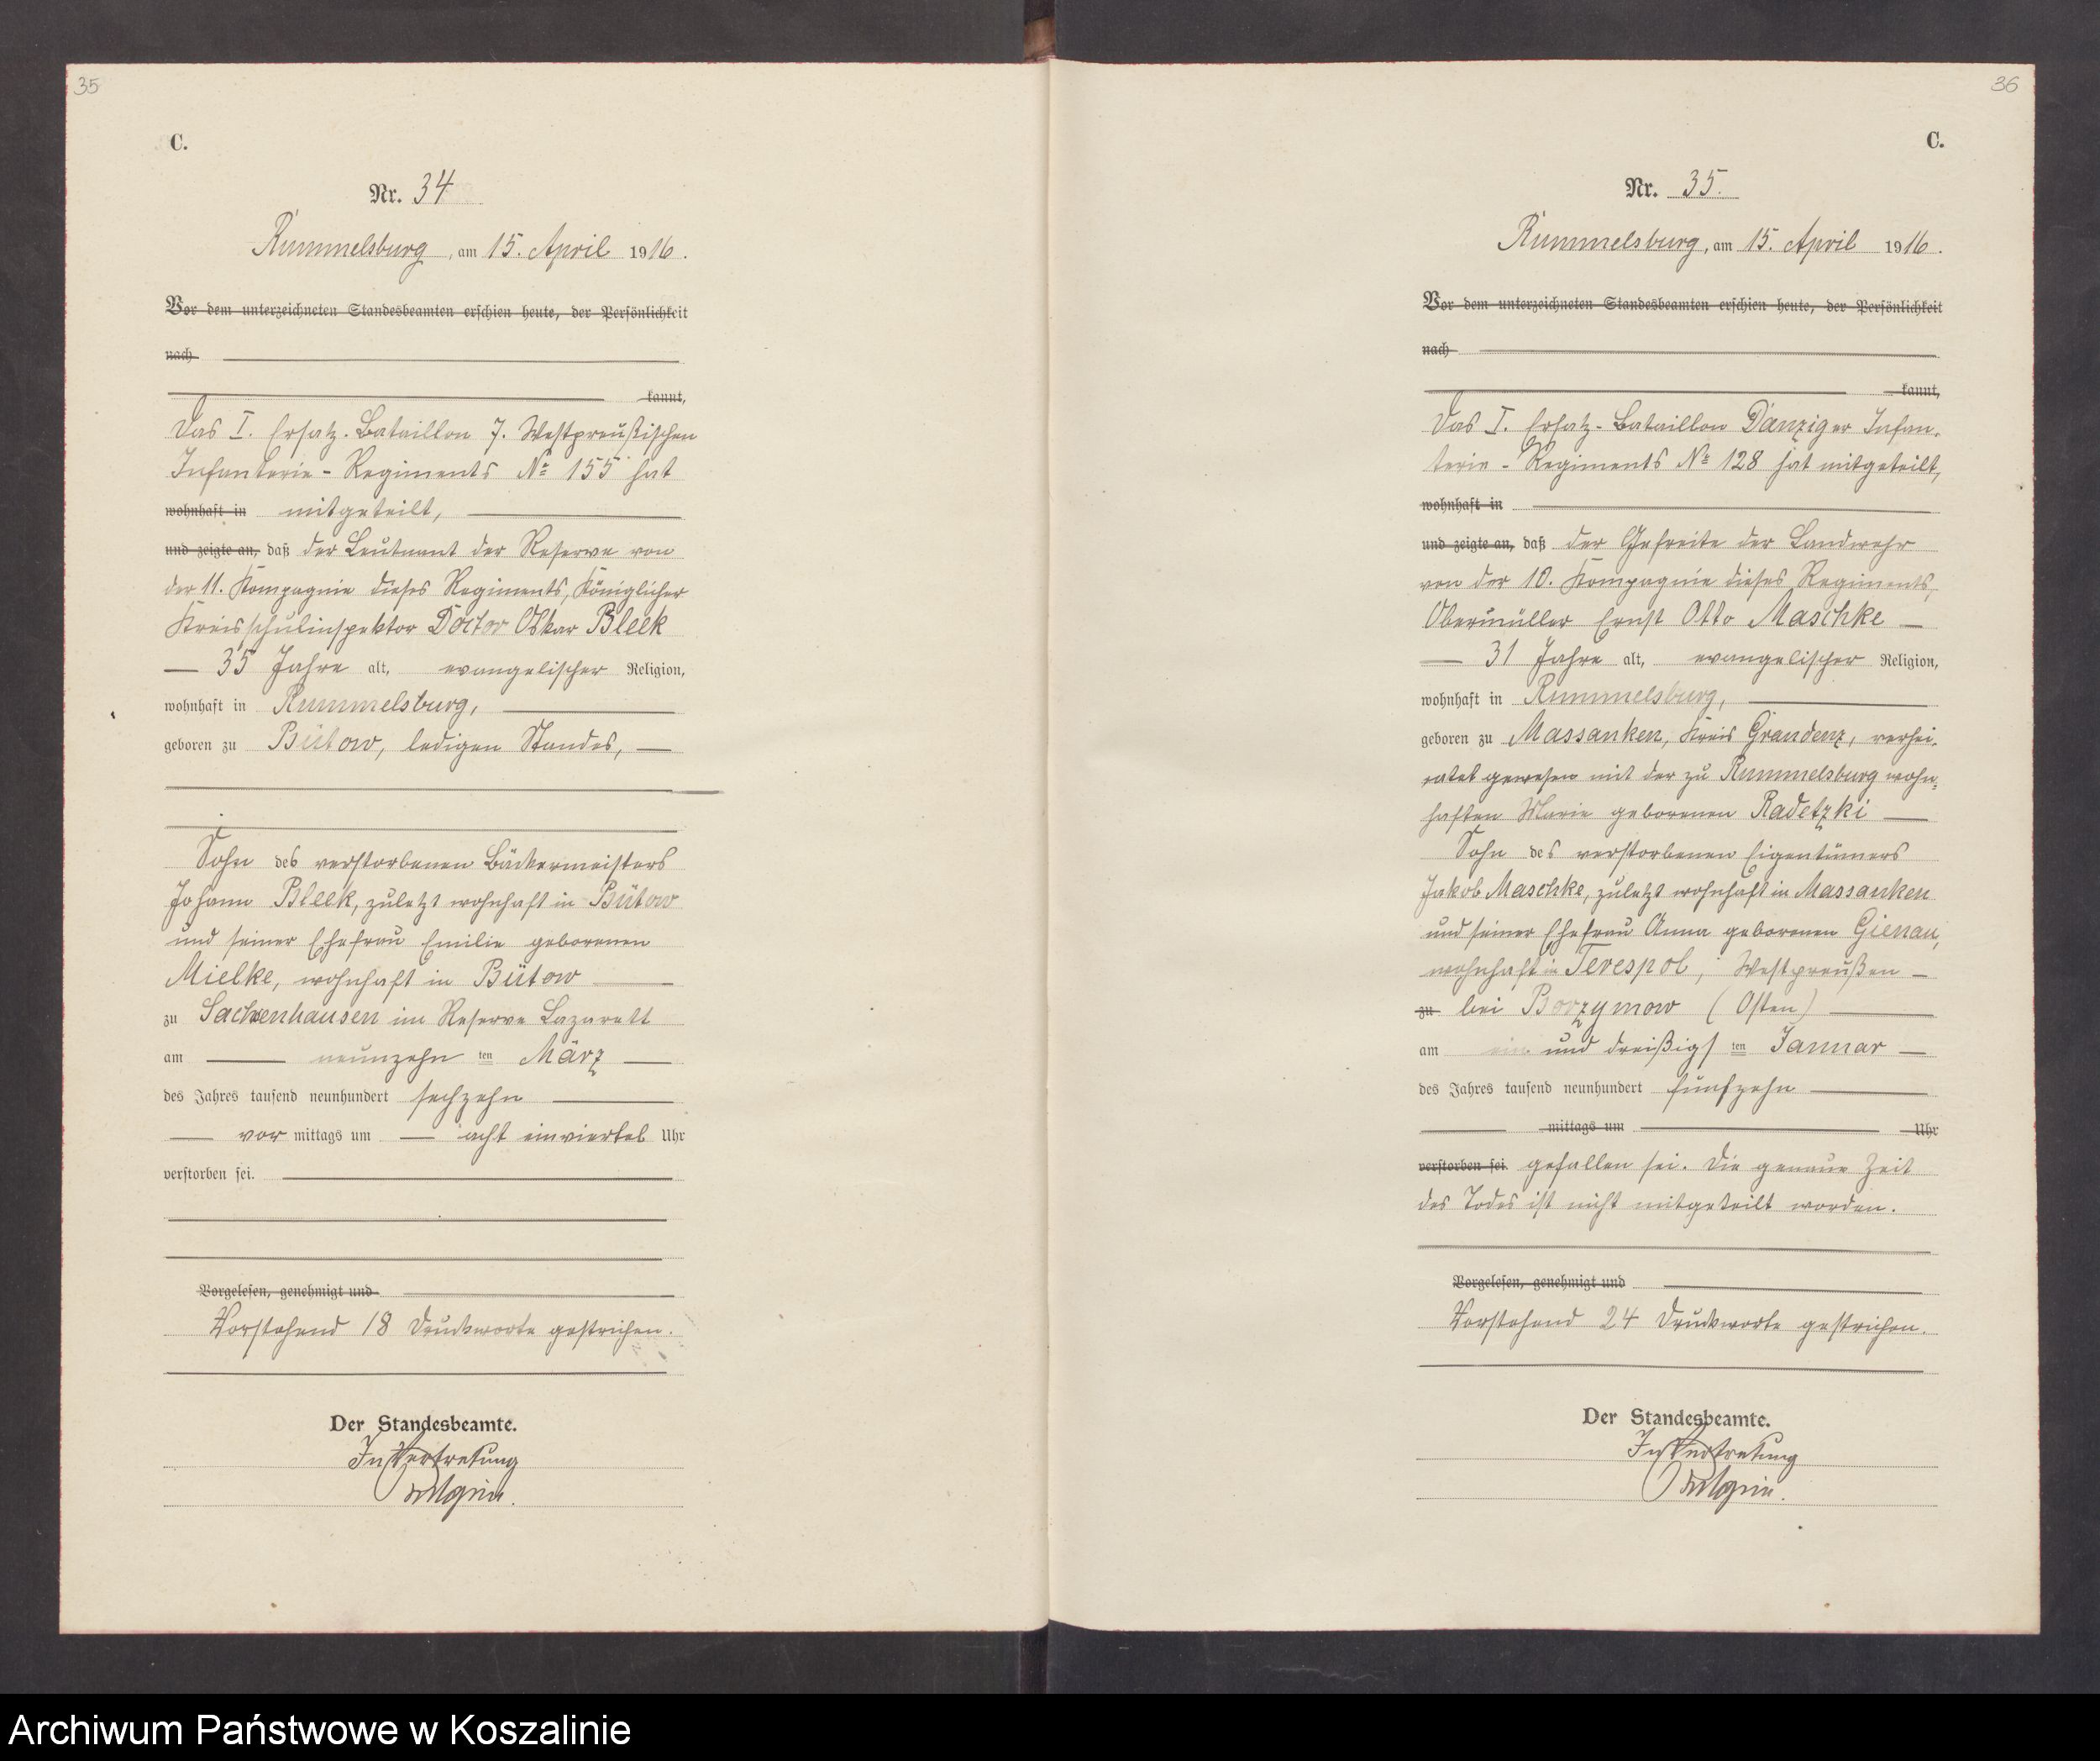 35
C.
Nr. 34
Rummelsburg, am 15. April 1916.
Vor dem unterzeichneten Standesbeamten erschien heute, der Persönlichkeit
nach
kannt,
Das I. Ersatz-Bataillon 7. Westpreußischen
Infanterie-Regiments No 155 hat
wohnhaft in mitgeteilt,
und zeigte an, daß der Leutnant der Reserve von
der 11. Kompagnie dieses Regiments, Königlicher
Kreisschulinspektor Doctor Oskar Bleek
35 Jahre alt, evangelischer Religion,
wohnhaft in Rummelsburg,
geboren zu Bütow, ledigen Standes,
Sohn des verstorbenen Bäckermeisters
Johann Bleek, zuletzt wohnhaft in Bütow
und seiner Ehefrau Emilie geborenen
Mielke, wohnhaft in Bütow
zu Sachsenhausen im Reserve Lazarett
am neunzehn ten März
des Jahres tausend neunhundert sechzehn
vor mittags um acht einviertel Uhr
verstorben sei.
Vorgelesen, genehmigt und
Vorstehend 18 Druckworte gestrichen.
Der Standesbeamte.
In Vertretung
36
C.
Nr. 35.
Rummelsburg, am 15. April 1916.
Vor dem unterzeichneten Standesbeamten erschien heute, der Persönlichkeit
nach
kannt,
Das I. Ersatz-Bataillon Danziger Infan-
terie-Regiments No 128 hat mitgeteilt,
wohnhaft in
und zeigte an, daß der Gefreite der Landwehr
von der 10. Kompagnie dieses Regiments,
Obermüller Ernst Otto Maschke
31 Jahre alt, evangelischer Religion,
wohnhaft in Rummelsburg,
geboren zu Massanken, Kreis Graudenz, verhei-
ratet gewesen mit der zu Rummelsburg wohn-
haften Marie geborenen Radetzki
Sohn des verstorbenen Eigentümers
Jakob Maschke, zuletzt wohnhaft in Massanken
und seiner Ehefrau Anna geborenen Gienau,
wohnhaft in Terespol, Westpreußen
zu bei Borzymow (Osten)
am ein und dreißigs ten Januar
des Jahres tausend neunhundert fünfzehn
mittags um Uhr
verstorben sei gefallen sei. Die genaue Zeit
des Todes ist nicht mitgeteilt worden.
Vorgelesen, genehmigt und
Vorstehend 24 Druckworte gestrichen.
Der Standesbeamte.
In Vertretung
Archiwum Państwowe w Koszalinie